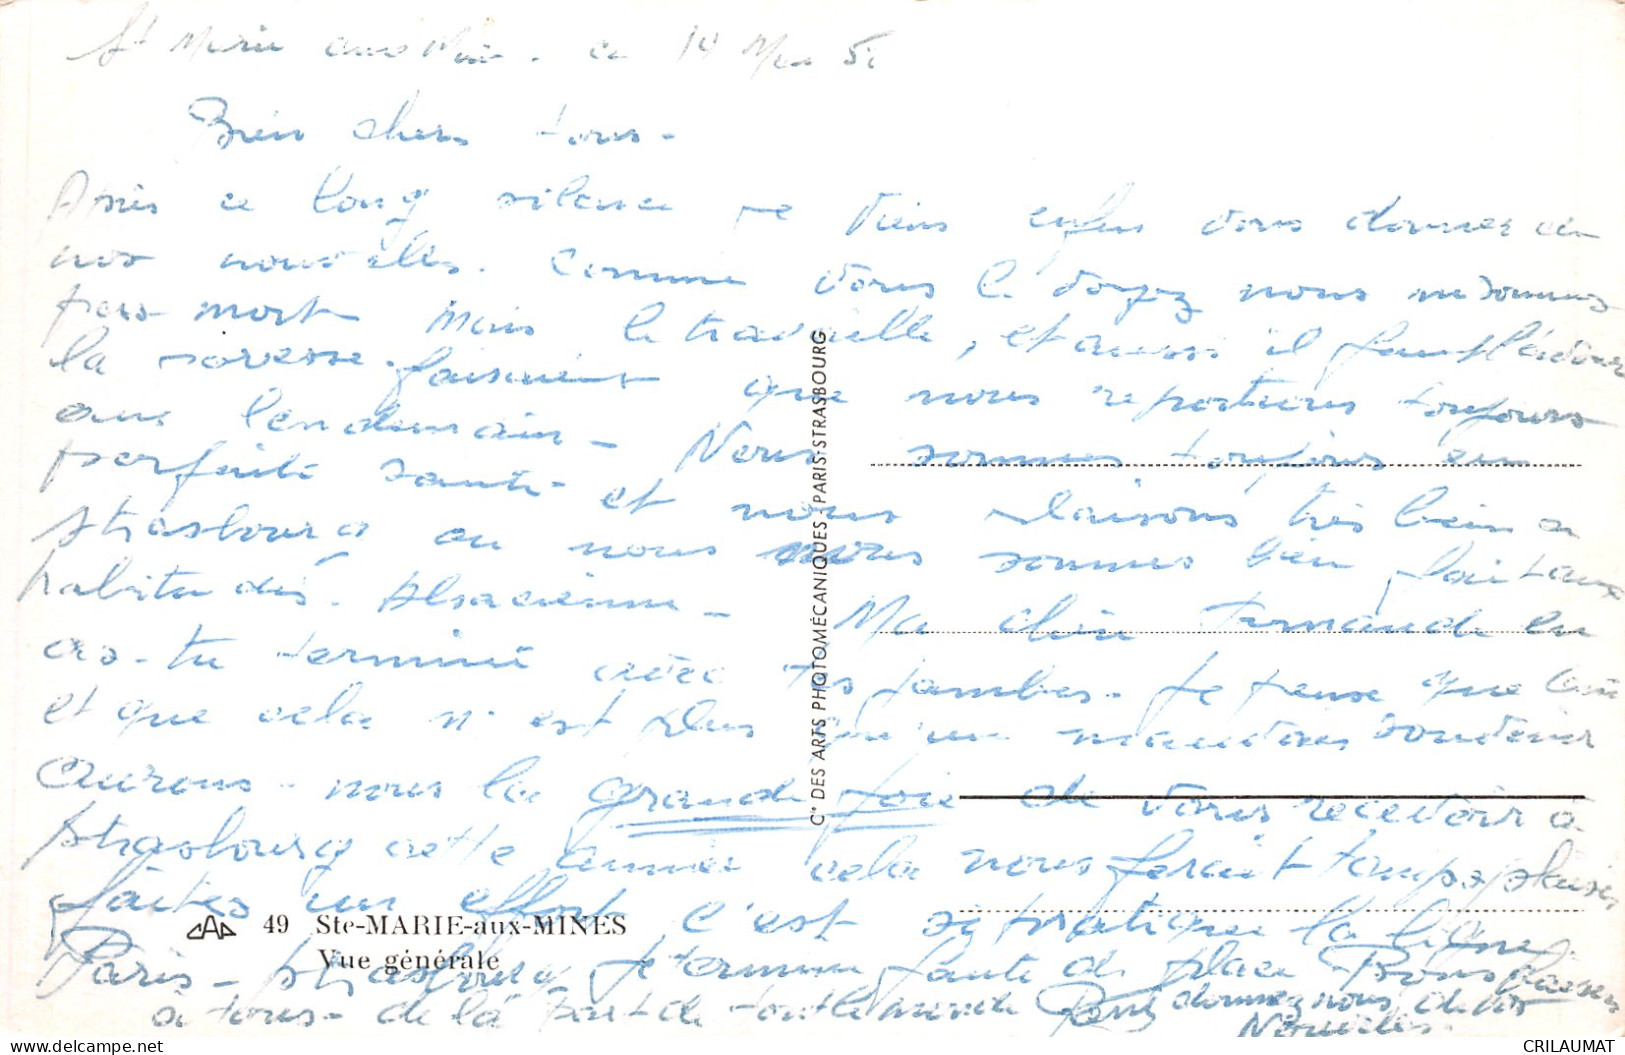 St Marie aux Mines. le 14 Mai 5
Bien chers tous -
Après ce long silence je viens enfin vous donner de
nos nouvelles. Comme vous le voyez nous ne sommes
pas mort mais le travaille, et aussi il faut l'avouer
la paresse faisaient que nous reportions toujours
au lendemain - Nous sommes toujours en
parfaite santé et nous plaisons très bien a
Strasbourg ou nous nous sommes bien fait aux
habitudes Alsacienne - Ma chère Fernande en
as-tu terminé avec tes jambes. Je pense que oui
et que cela n'est plus qu'un mauvais souvenir
Aurons-nous la grande joie de vous recevoir à
Strasbourg cette année cela nous ferait plaisir
faites un effort c'est si pratique la ligne
Paris - Strasbourg Je termine faute de place Bons baisers
à tous - de la part de tout le monde donnez nous de vos
Nouvelles.
C<sup>ie</sup> DES ARTS PHOTOMÉCANIQUES - PARIS-STRASBOURG
CAP 49 Ste-MARIE-aux-MINES
Vue générale
CRILAUMAT